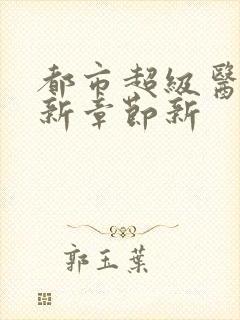 都市超級醫
新章節新
郭玉葉